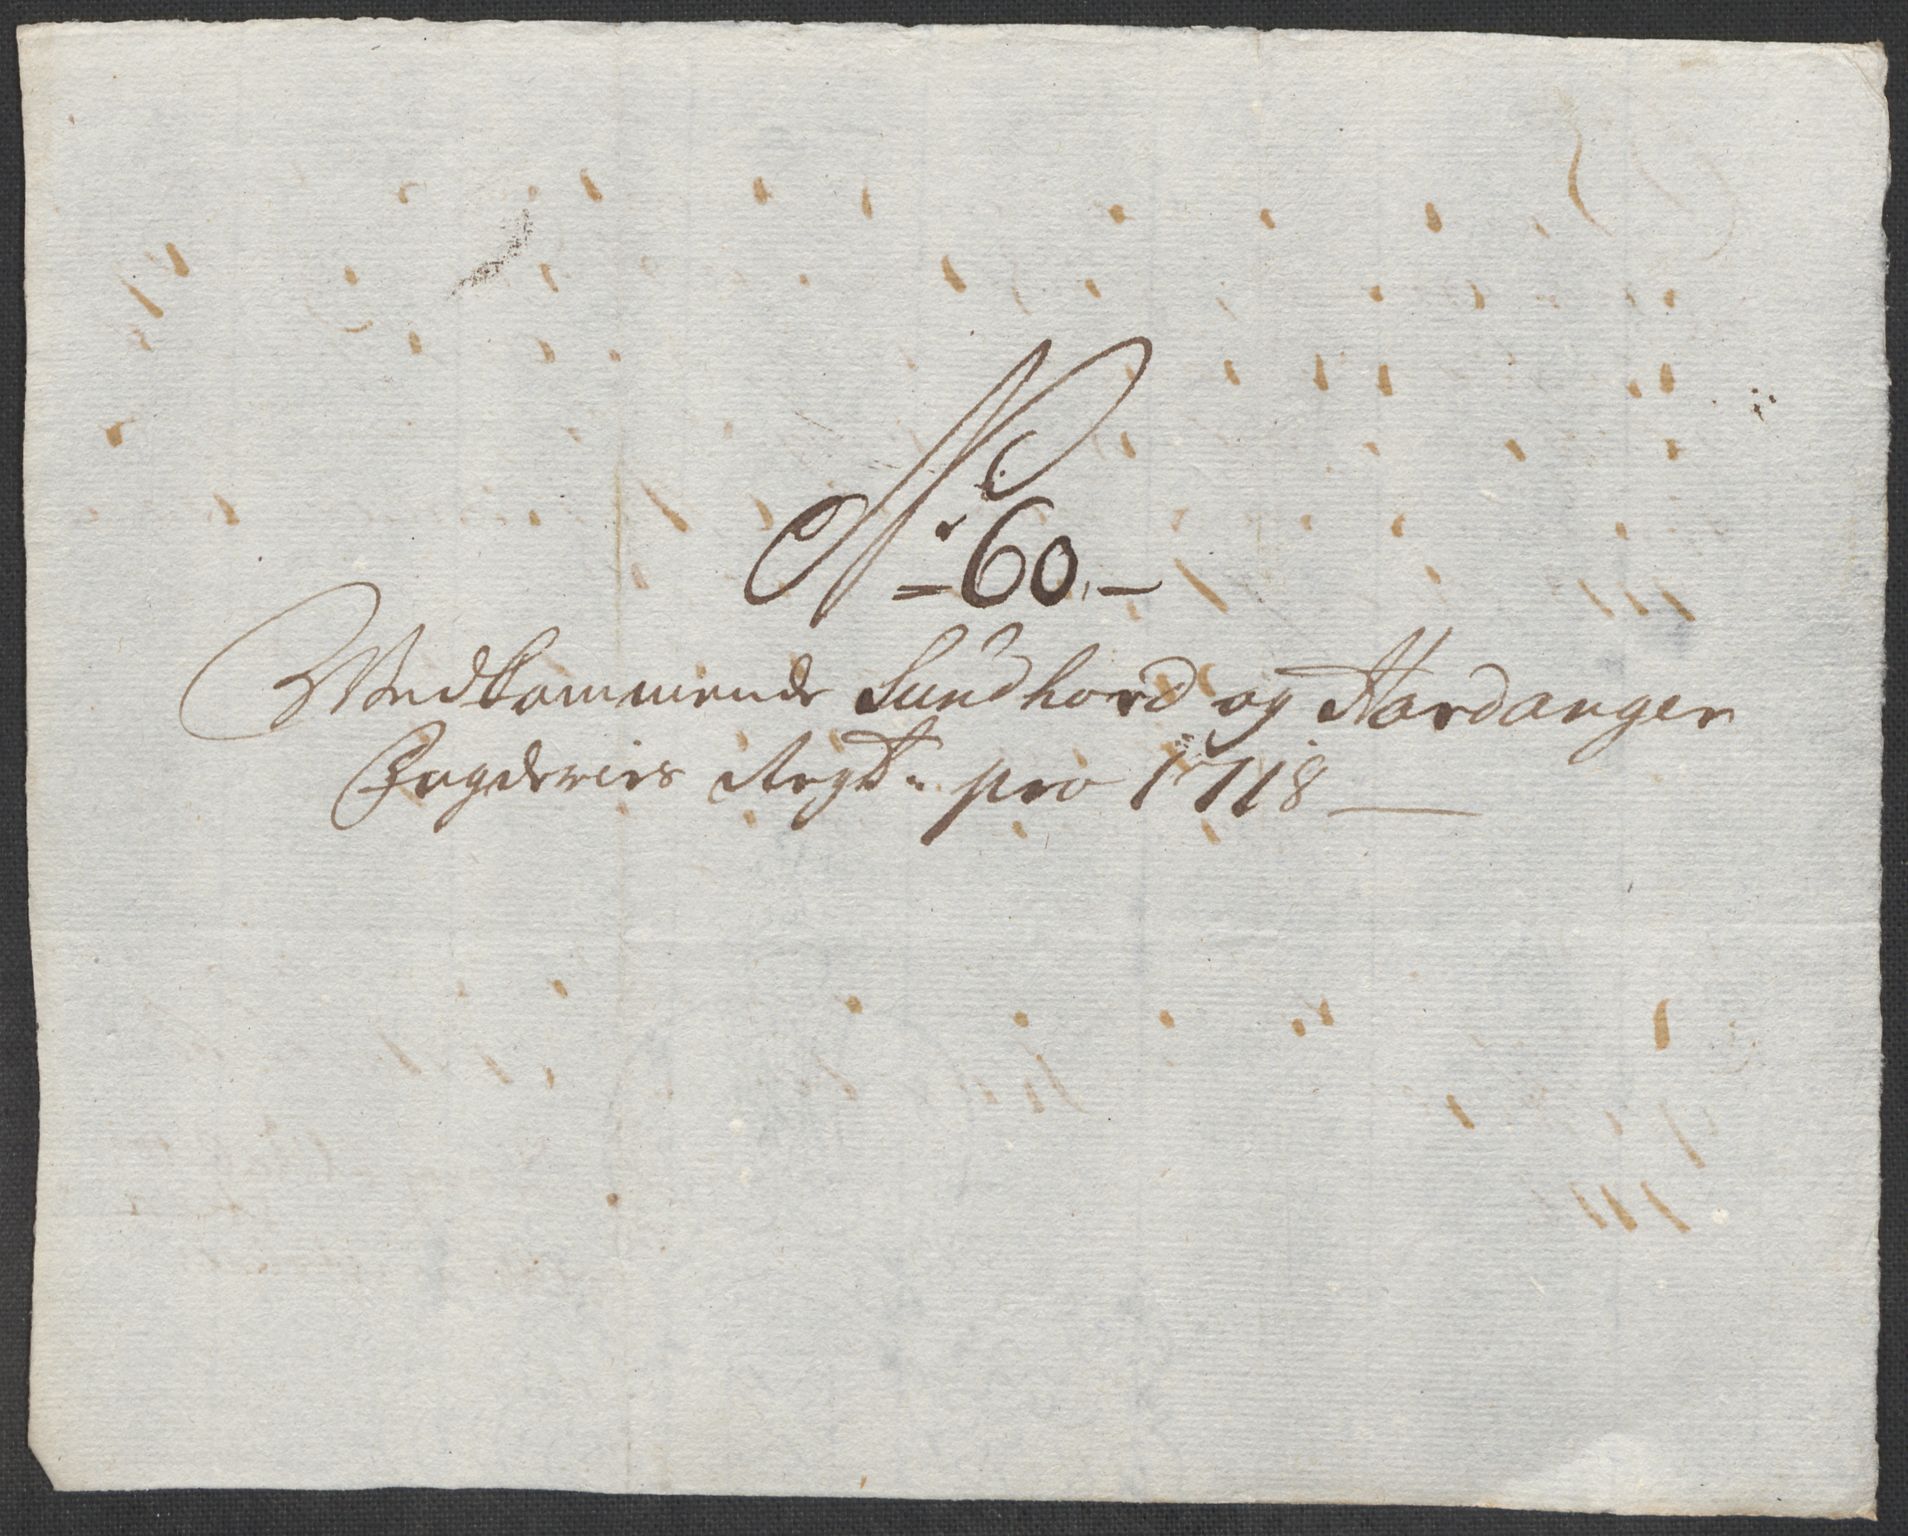 No: 60.
Wedkommende Sundhord og Hardanger
Fogderies Regsk: pro 1718